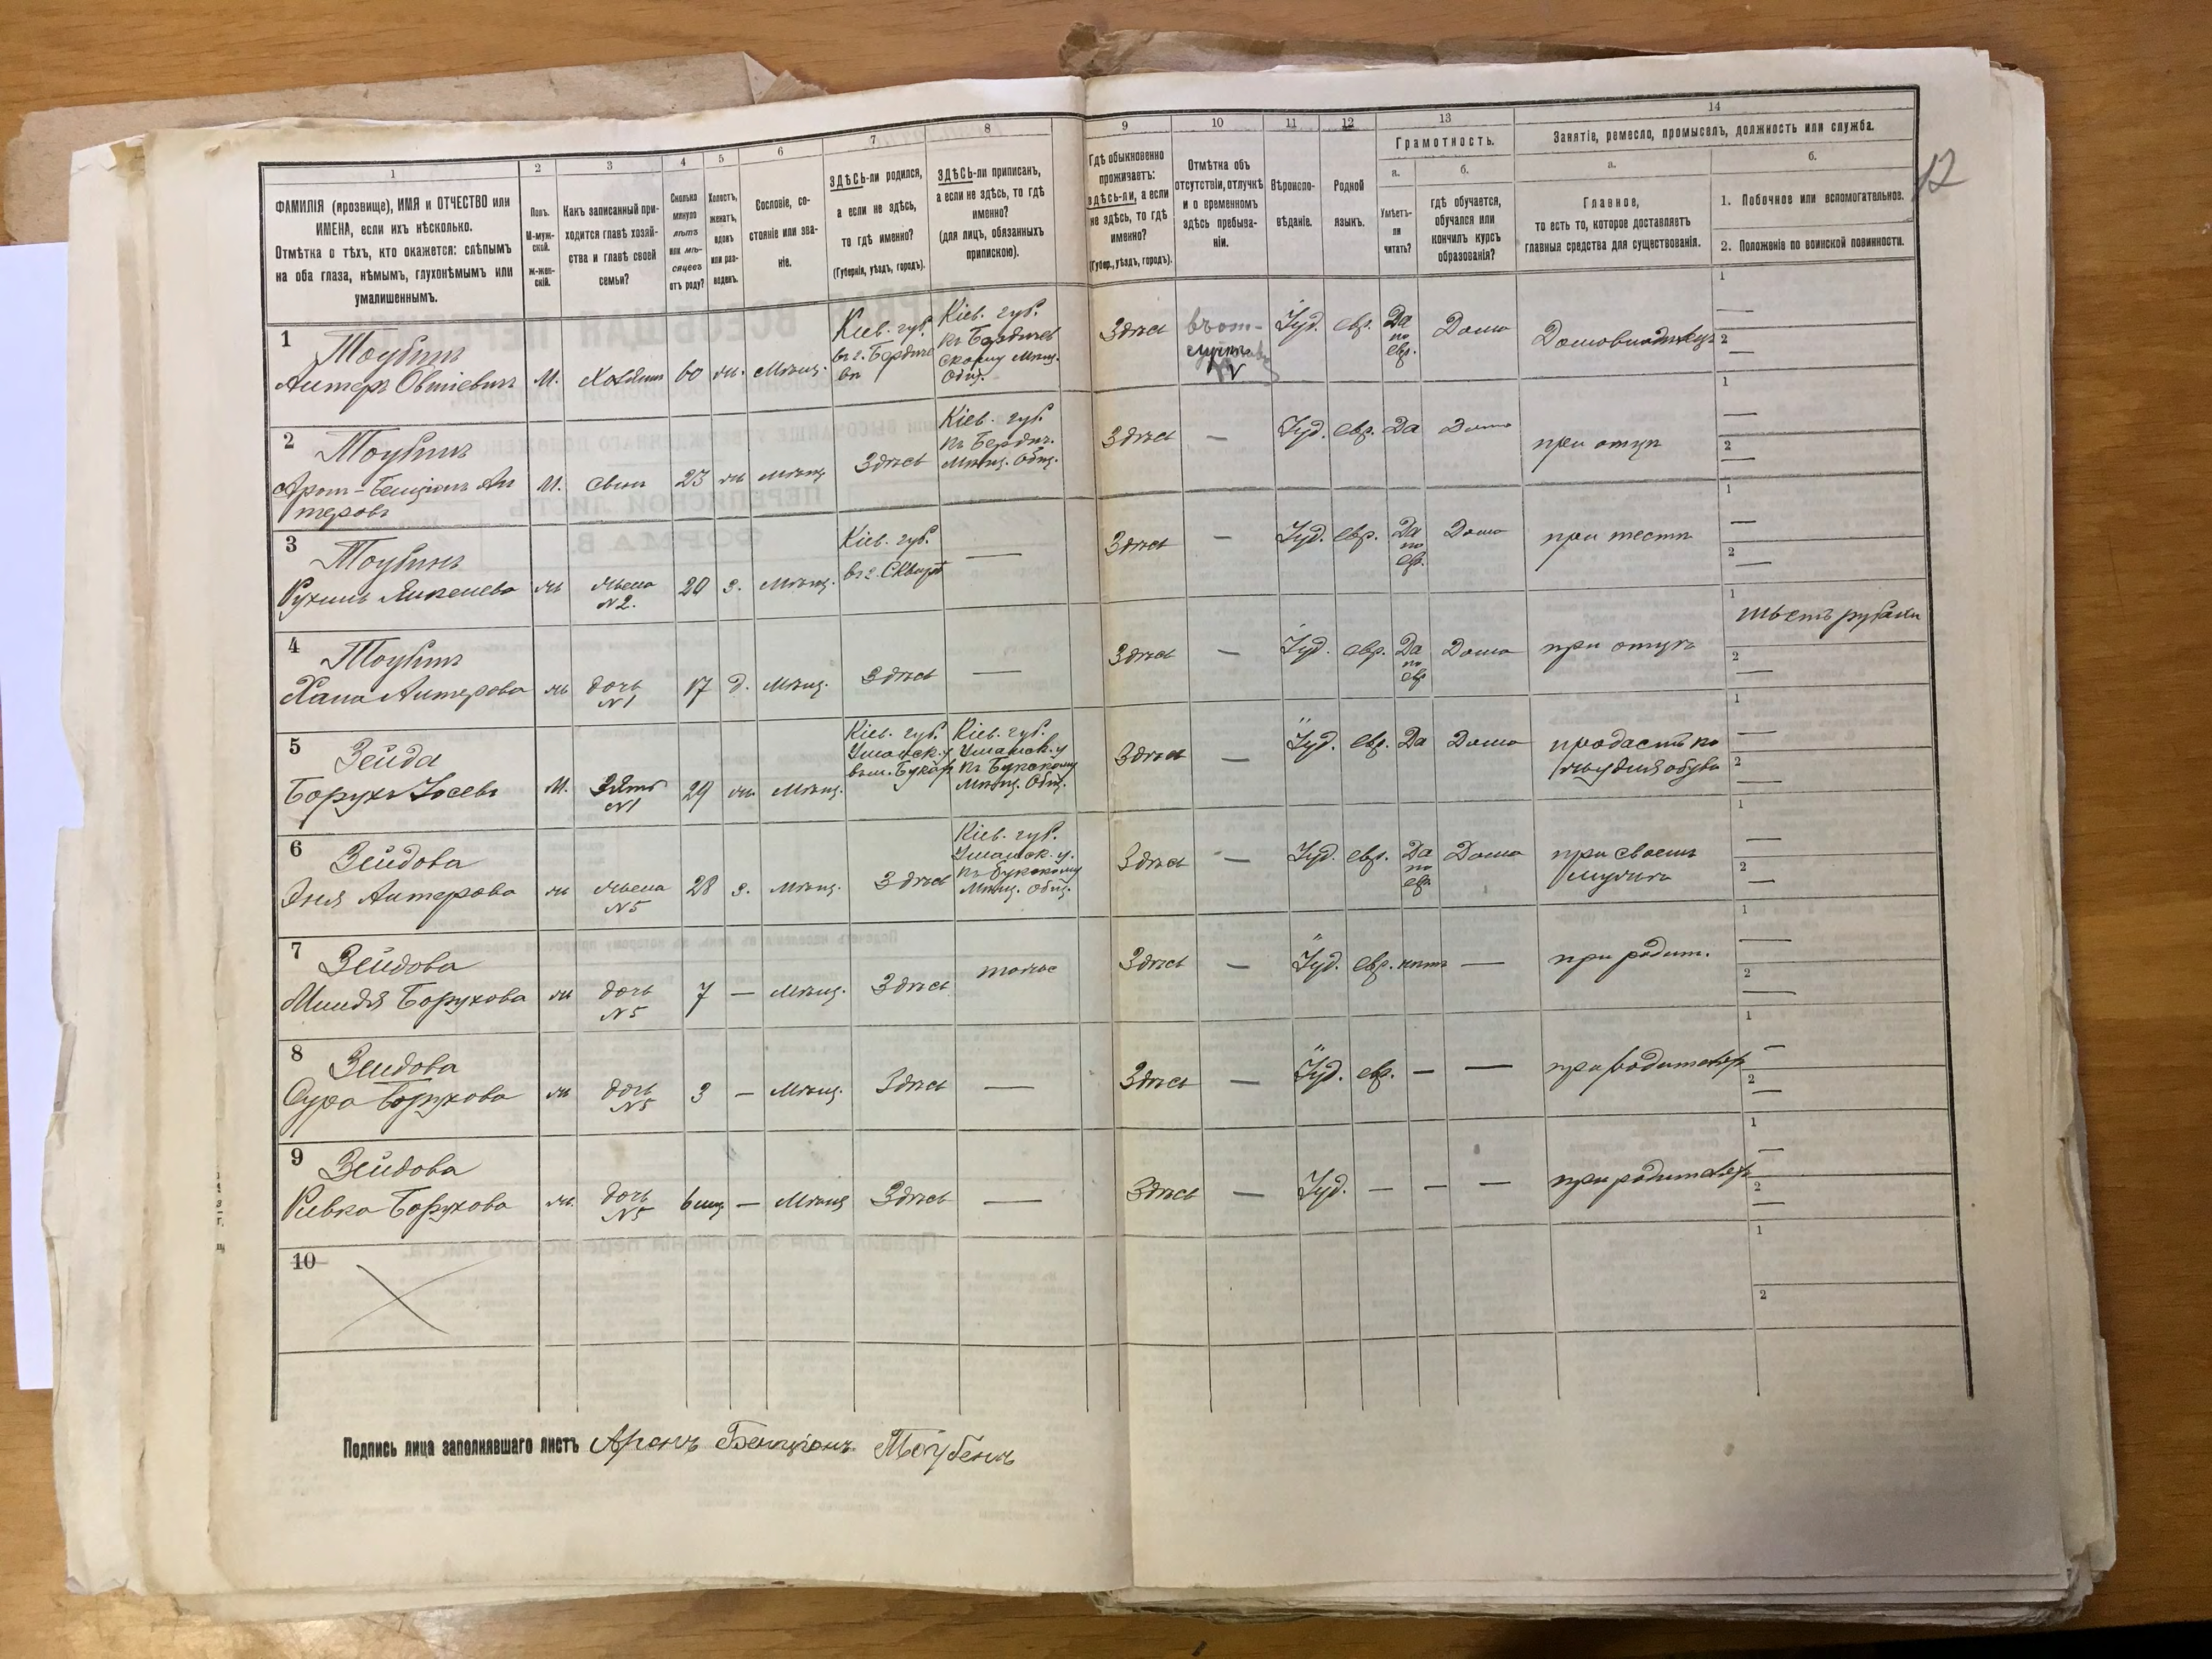 1
ФАМИЛІЯ (прозвище), ИМЯ и ОТЧЕСТВО или
ИМЕНА, если ихъ нѣсколько.
Отмѣтка о тѣхъ, кто окажется: слѣпымъ
на оба глаза, нѣмымъ, глухонѣмымъ или
умалишеннымъ.
2
Полъ.
М-муж-
ской.
Ж-жен-
скій.
3
Какъ записанный при-
ходится главѣ хозяй-
ства и главѣ своей
семьи?
4
Сколько
минуло
лѣтъ
или мѣ-
сяцевъ
отъ роду?
5
Холостъ,
женатъ,
вдовъ
или раз-
веденъ.
6
Сословіе, со-
стояніе или зва-
ніе.
7
ЗДѢСЬ-ли родился,
а если не здѣсь,
то гдѣ именно?
(Губернія, уѣздъ, городъ).
8
ЗДѢСЬ-ли приписанъ,
а если не здѣсь, то гдѣ
именно?
(для лицъ, обязанныхъ
припискою).
9
Гдѣ обыкновенно
проживаетъ:
здѣсь-ли, а если
не здѣсь, то гдѣ
именно?
(Губер., уѣздъ, городъ).
10
Отмѣтка объ
отсутствіи, отлучкѣ
и о временномъ
здѣсь пребыва-
ніи.
11
Вѣроиспо-
вѣданіе.
12
Родной
языкъ.
13
Грамотность.
а.
Умѣетъ-
ли
читать?
б.
гдѣ обучается,
обучался или
кончилъ курсъ
образованія?
14
Занятіе, ремесло, промыселъ, должность или служба.
а.
Главное,
то есть то, которое доставляетъ
главныя средства для существованія.
б.
1. Побочное или вспомогательное.
2. Положеніе по воинской повинности.
12
1
Тоубинъ
М. Хозяинъ 60 ж. Мѣщ.
Кіев. губ.
Кіев. губ.
Здѣсь
Іуд. евр. Да
по
евр.
Дома
Домовладѣлецъ
1
2
2
Тоубинъ
М. сынъ 23 ж. мѣщ. Здѣсь
Кіев. губ.
къ Бердич.
Мѣщ. Общ.
Здѣсь — Іуд. евр. Да Дома при отцѣ
1
2
3
Тоубинъ
ж жена
№ 2.
20 з. Мѣщ.
Кіев. губ.
въ г. Сквирѣ
—
Здѣсь — Іуд. евр. Да
по
евр.
Дома при тестѣ
1
2
4
Тоубинъ
Хана Антерова ж дочь
№ 1
17 д. Мѣщ. Здѣсь —
Здѣсь — Іуд. евр. Да
по
евр
Дома при отцѣ
1
шьетъ рубахи
2
5
Зейда
Борухъ Іосевъ М. Зять
№ 1
29 ж. Мѣщ.
Кіев. губ.
Уманск. у
Кіев. губ.
Уманск. у
къ Букскому
Мѣщ. Общ.
Здѣсь — Іуд. евр. Да Дома
1
2
6
Зейдова
Эня Антерова ж жена
№ 5
28 з. Мѣщ. Здѣсь
Кіев. губ.
Уманск. у.
къ Букскому
Мѣщ. Общ.
Здѣсь — Іуд. евр. Да
по
евр.
Дома при своемъ
мужѣ
1
2
7
Зейдова
Миндя Борухова ж дочь
№ 5
7 — Мѣщ. Здѣсь тоже
Здѣсь — Іуд. евр. нѣтъ — при родит.
1
2
8
Зейдова
Сура Борухова ж дочь
№ 5
3 — Мѣщ. Здѣсь —
Здѣсь — Іуд. евр. — — при родителяхъ
1
2
9
Зейдова
Ривка Борухова ж. дочь
№ 5
6 мѣс — Мѣщ Здѣсь —
Здѣсь — Іуд. — — — при родителяхъ
1
2
10
1
2
Подпись лица заполнявшаго листъ Аронъ Бенціонъ Тоубенъ